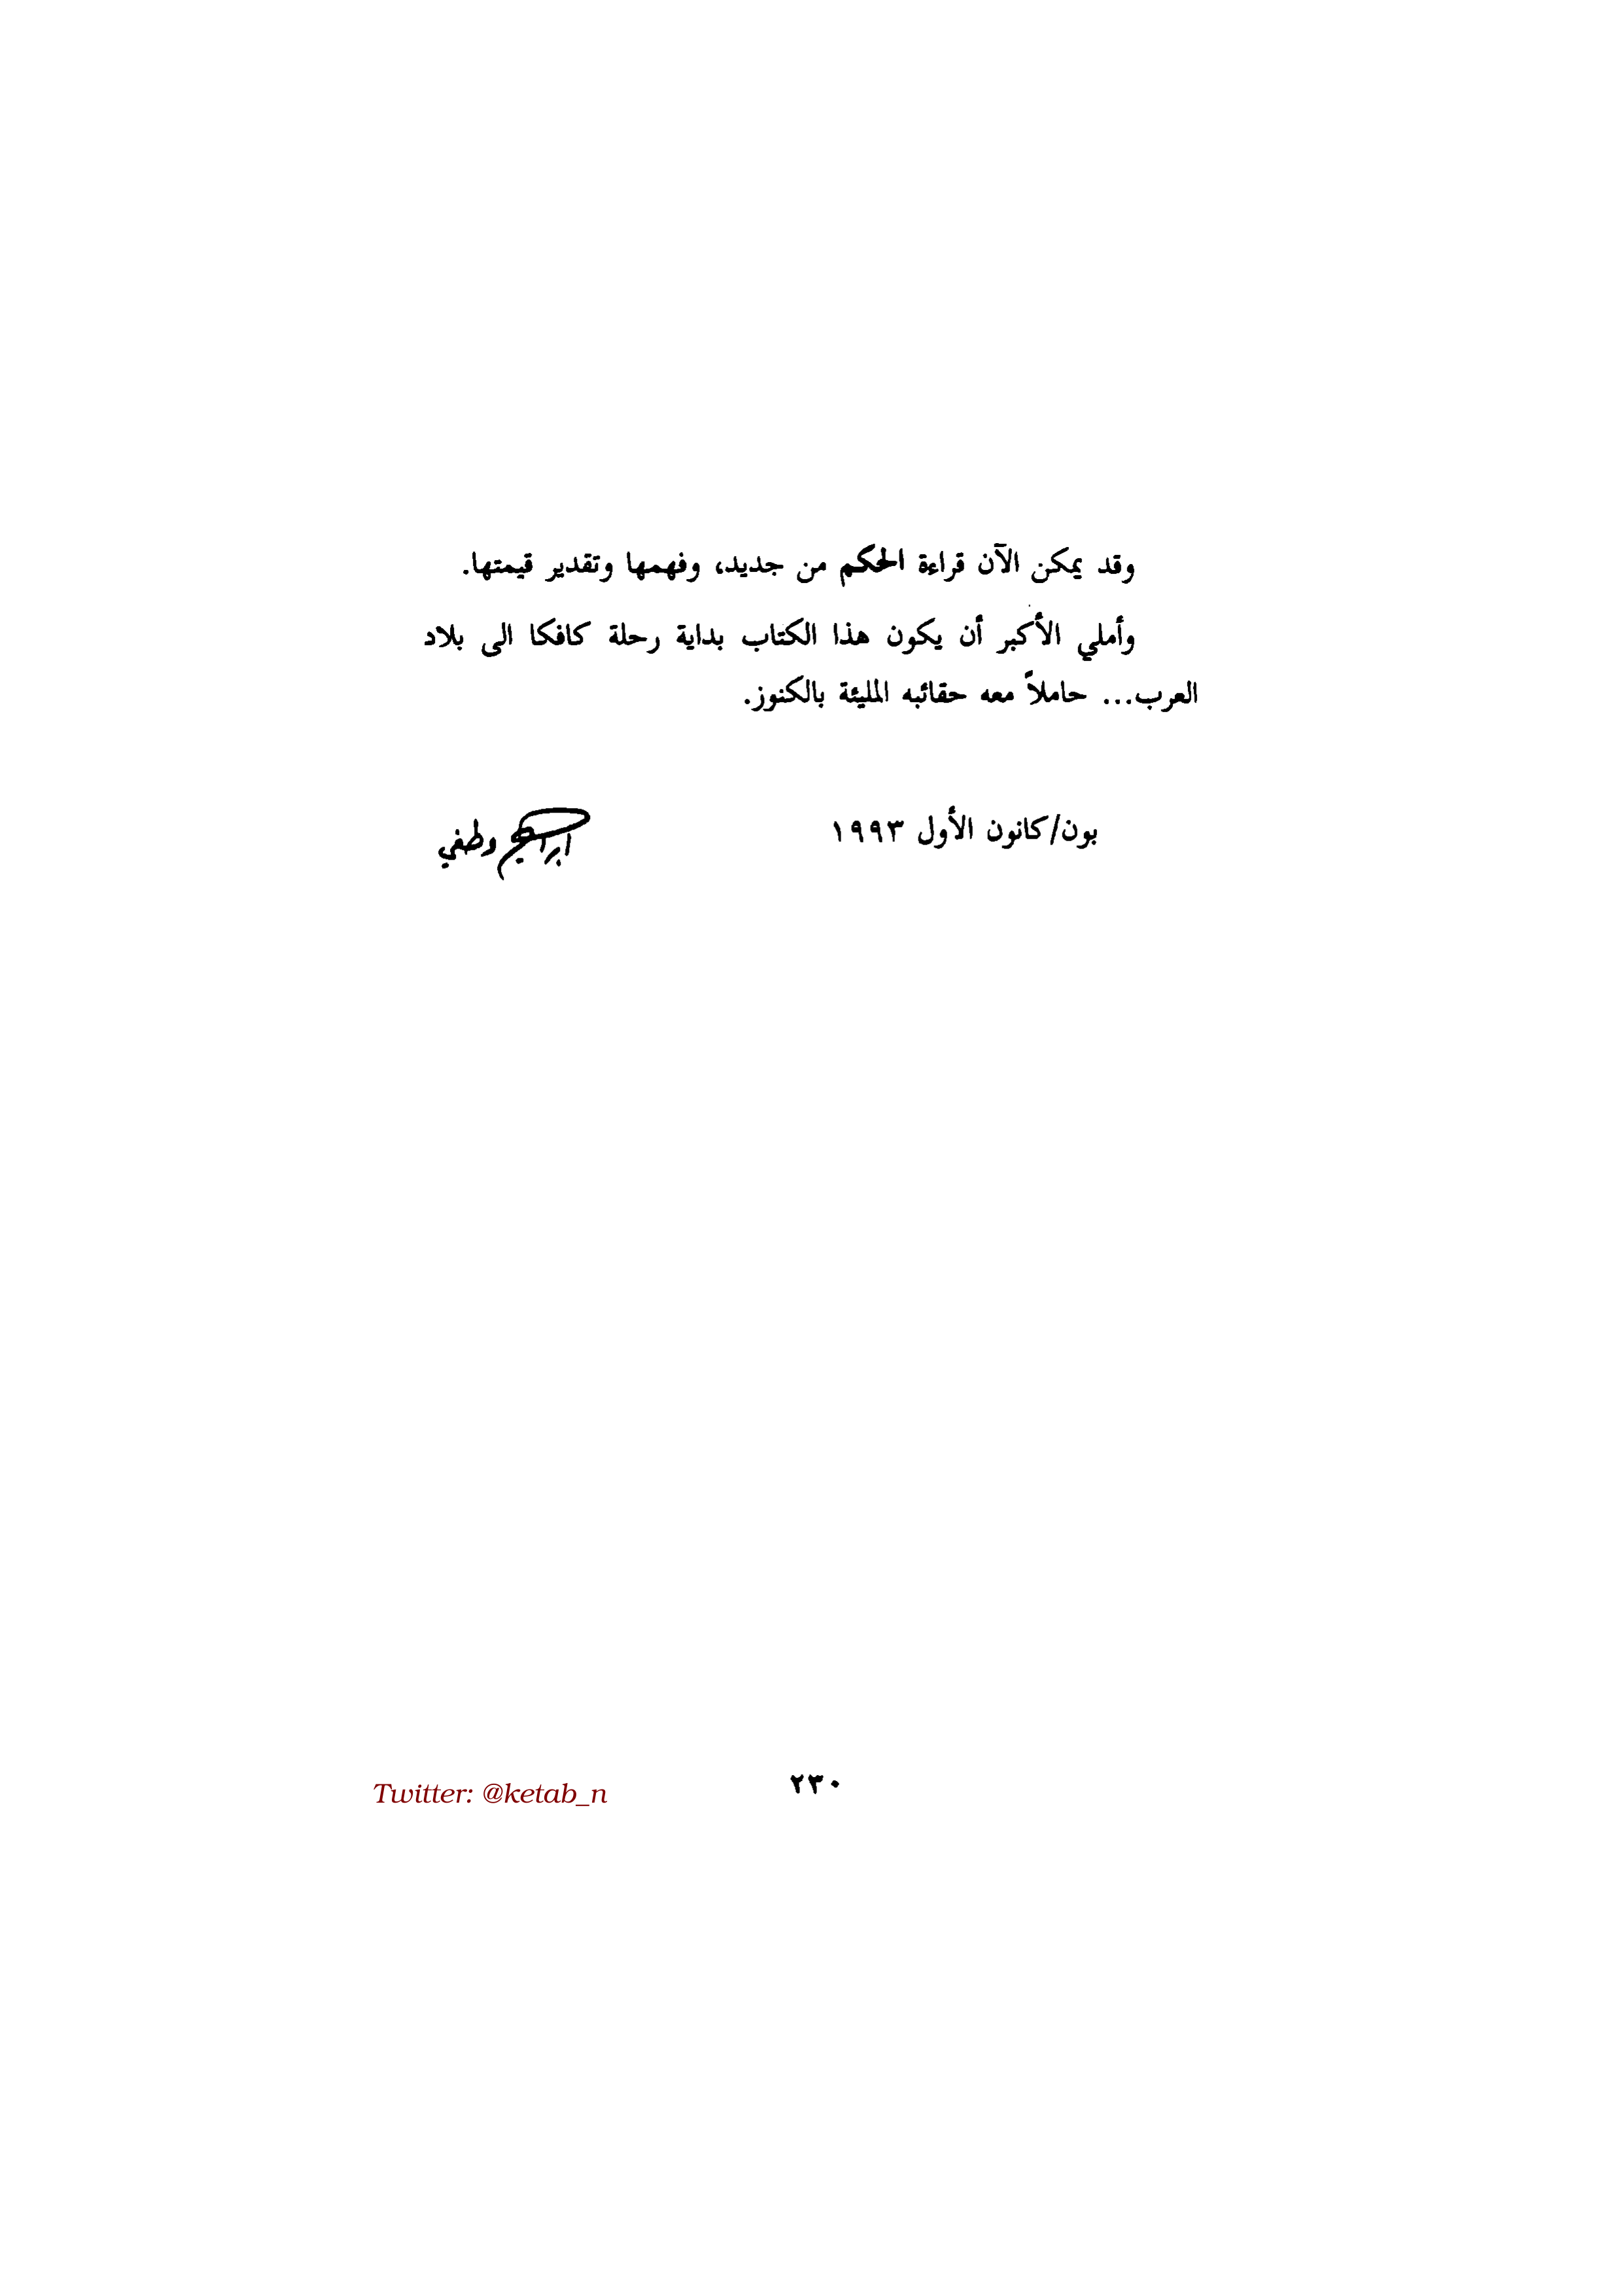 وقد يمكن الآن قراءة الحكم من جديد، وفهمها وتقدير قيمتها.
وأملي الأكبر أن يكون هذا الكتاب بداية رحلة كافكا الى بلاد
العرب... حاملاً معه حقائبه المليئة بالكنوز.
بون/كانون الأول ١٩٩٣
ابراهيم وطفي
٢٣٠
Twitter: @ketab_n